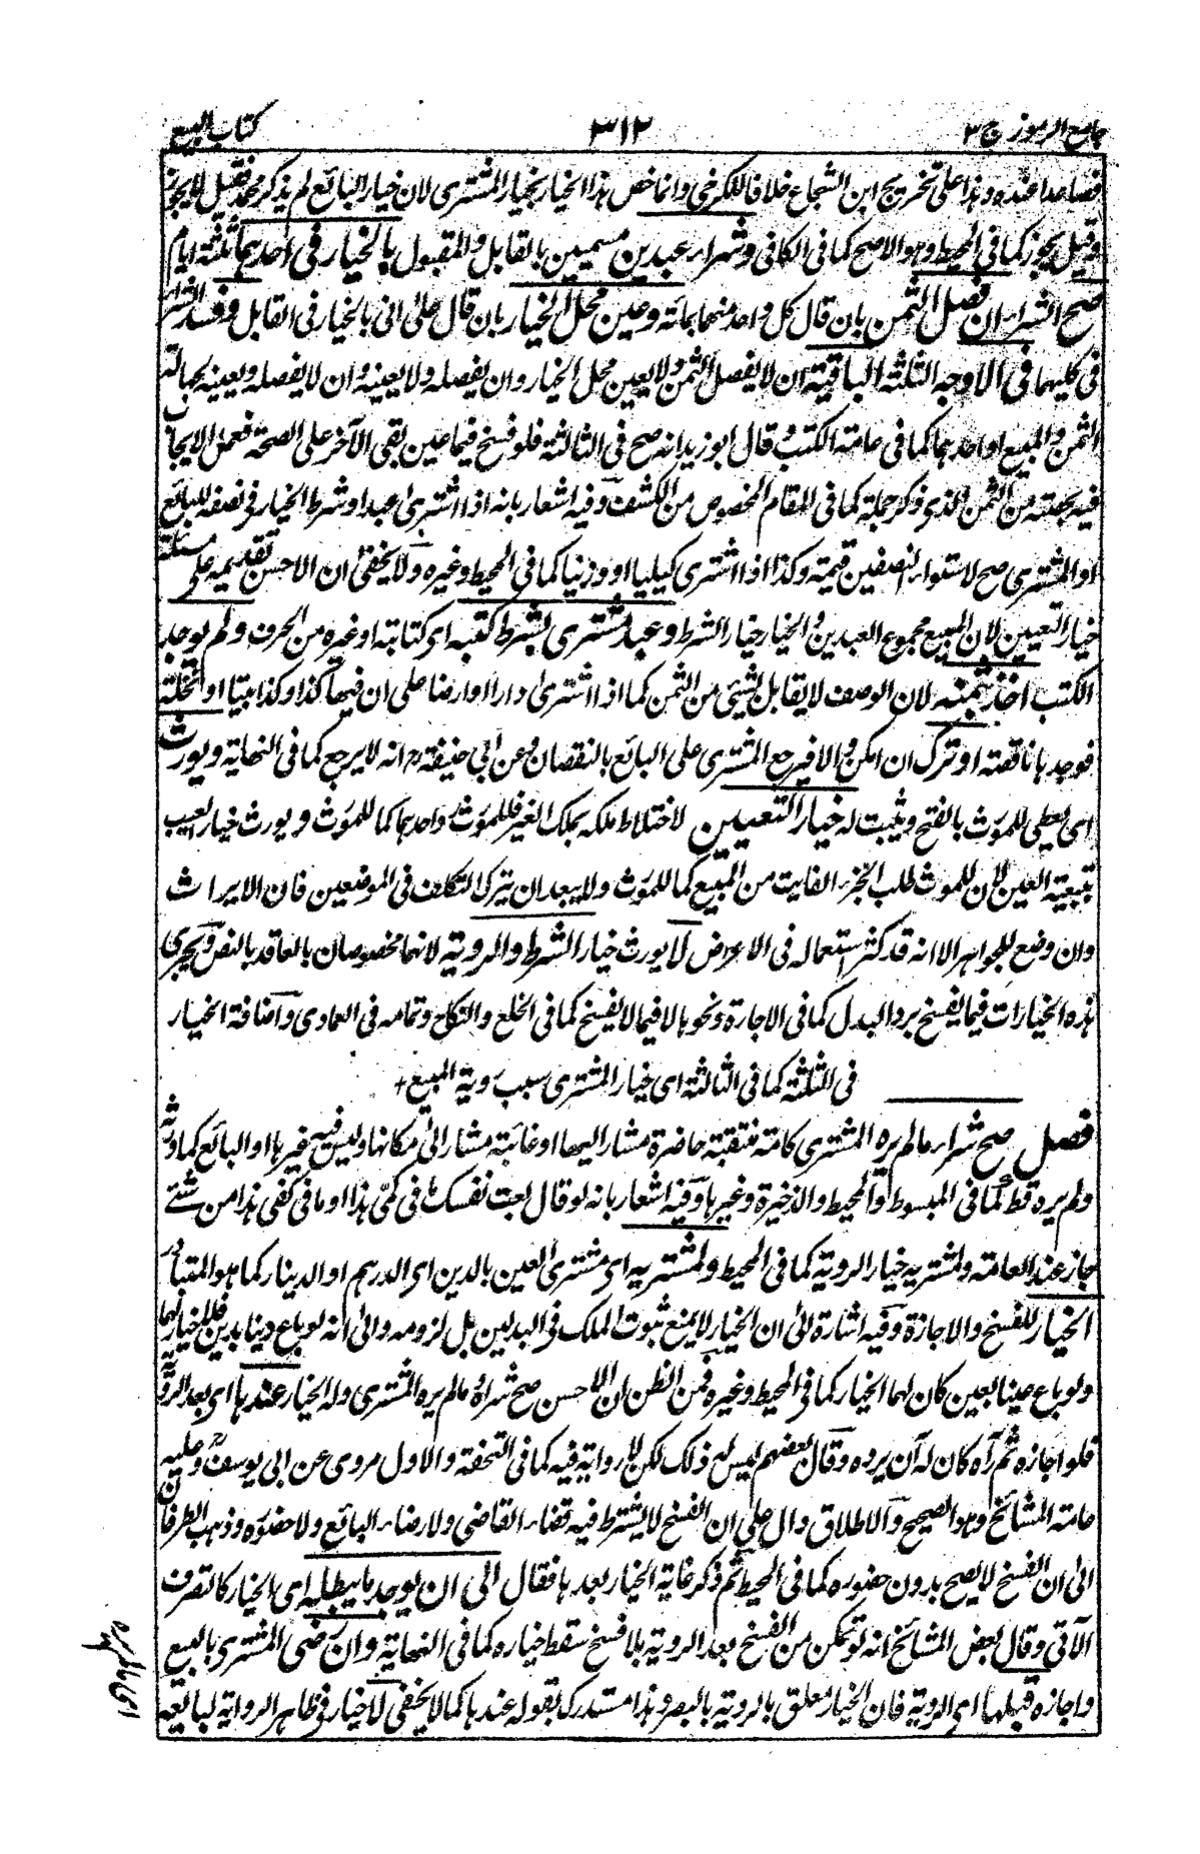 جامع الرموز ج ٣ ٣١٢ كتاب البيع
فصاعدا عنده وهذا على تخريج ابن الشجاع خلافا للكرخى وانما خص هذا الخيار بخيار المشترى لان خيار البائع لم يذكر محمد فقيل لا يجوز
وقيل يجوز كما فى المحيط وهو الاصح كما فى الكافى وشراء عبدين مسميين بالقابل والمقبول بالخيار فى احدهما ثلثة ايام
صح الشراء ان فصل الثمن بان قال كل واحد منهما بمائة وعين محل الخيار بان قال على انى بالخيار فى القابل وفسد الشراء
فى كليهما فى الاوجه الثلثة الباقية ان لا يفصل الثمن ولا يعين محل الخيار وان يفصله ولا يعينه وان لا يفصله ويعينه لجهالة
الثمن والمبيع او احدهما كما فى عامة الكتب وقال ابو زيد انه صح فى الثالثة فلو فسخ فيما عين بقى الآخر على الصحة فعمل الايجاب
فيه بحصته من الثمن الذى ذكر جملة كما فى المقام المخصوص من الكشف وفيه اشعار بانه اذا اشترى عبدا وشرط الخيار فى نصفه للبائع
او المشترى صح لاستواء النصفين قيمة وكذا اذا اشترى كيليا او وزنيا كما فى المحيط وغيره ولا يخفى ان الاحسن تقديمه على مسئلة
خيار التعيين لان المبيع مجموع العبدين والخيار خيار الشرط وعبد مشترى بشرط كتبه اى كتابته او غيره من الحرف ولم يوجد
الكتب اخذ بثمنه لان الوصف لا يقابل لشيئ من الثمن كما اذا اشترى دارا او ارضا على ان فيها كذا وكذا بيتا او نخلة
فوجدها ناقصة او ترك ان امكن والا فيرجع المشترى على البائع بالنقصان وعن ابى حنيفة رح انه لا يرجع كما فى النهاية ويورث
اى يعطى للمورث بالفتح ويثبت له خيار التعيين لاختلاط ملكه بملك الغير فللمورث واحدهما كما للمورث ويورث خيار العيب
بتبعية العين لان للمورث طلب الجزء الفايت من المبيع كما للمورث ولا يبعد ان يترك التكلف فى الموضعين فان الايراث
وان وضع للجواهر الا انه قد كثر استعماله فى الاعراض لا يورث خيار الشرط والروية لانهما مخصوصان بالعاقد بالنص ويجرى
هذه الخيارات فيما يفسخ برد البدل كما فى الاجارة ونحوها لا فيما لا يفسخ كما فى الخلع والنكاح وتمامه فى العمادى واضافة الخيار
فى الثلثة كما فى الثالثة اى خيار المشترى بسبب روية المبيع +
فصل صح شراء مالم يره المشترى كامة منتقبة حاضرة مشار اليها او غائبة مشار الى مكانها وليس فيه غيرها او البائع كما ورثه
ولم يره قط كما فى المبسوط والمحيط والذخيرة وغيرها وفيه اشعار بانه لو قال بعت نفسك ما فى كمى هذا او ما فى كفى هذا من شئ
جاز عند العامة ولمشتريه خيار الروية كما فى المحيط ولمشتريه اى مشترى العين بالدين اى الدرهم او الدينار كما هو المتبادر
الخيار للفسخ والاجازة وفيه اشارة الى ان الخيار لا يمنع ثبوت الملك فى البدلين بل لزومه والى انه لو باع دينا بدين فلا خيار لهما
ولو باع عينا بعين كان لهما الخيار كما فى المحيط وغيره فمن الظن ان الاحسن صح شراؤ مالم يره المشترى وله الخيار عندها اى بعد الروية
فلو اجازه ثم رآه كان له ان يرده وقال بعضهم ليس له ذلك لكن لا رواية فيه كما فى التحفة والاول مروى عن ابى يوسف رح وعليه
عامة المشائخ وهو الصحيح والاطلاق دال على ان الفسخ لا يشترط فيه قضاء القاضى ولا رضاء البائع ولا حضوره وذهب الطرفان
الى ان الفسخ لا يصح بدون حضوره كما فى المحيط ثم ذكر غاية الخيار بعدها فقال الى ان يوجد ما يبطله اى الخيار كالتصرف
الآتى وقال بعض المشائخ انه لو تمكن من الفسخ بعد الروية بلا فسخ سقط خياره كما فى النهاية وان رضى المشترى بالبيع
واجازه قبلها اى الروية فان الخيار معلق بالروية بالبصر وهذا مستدرك بقوله عندها كما لا يخفى لا خيار فى ظاهر الرواية لبائعه